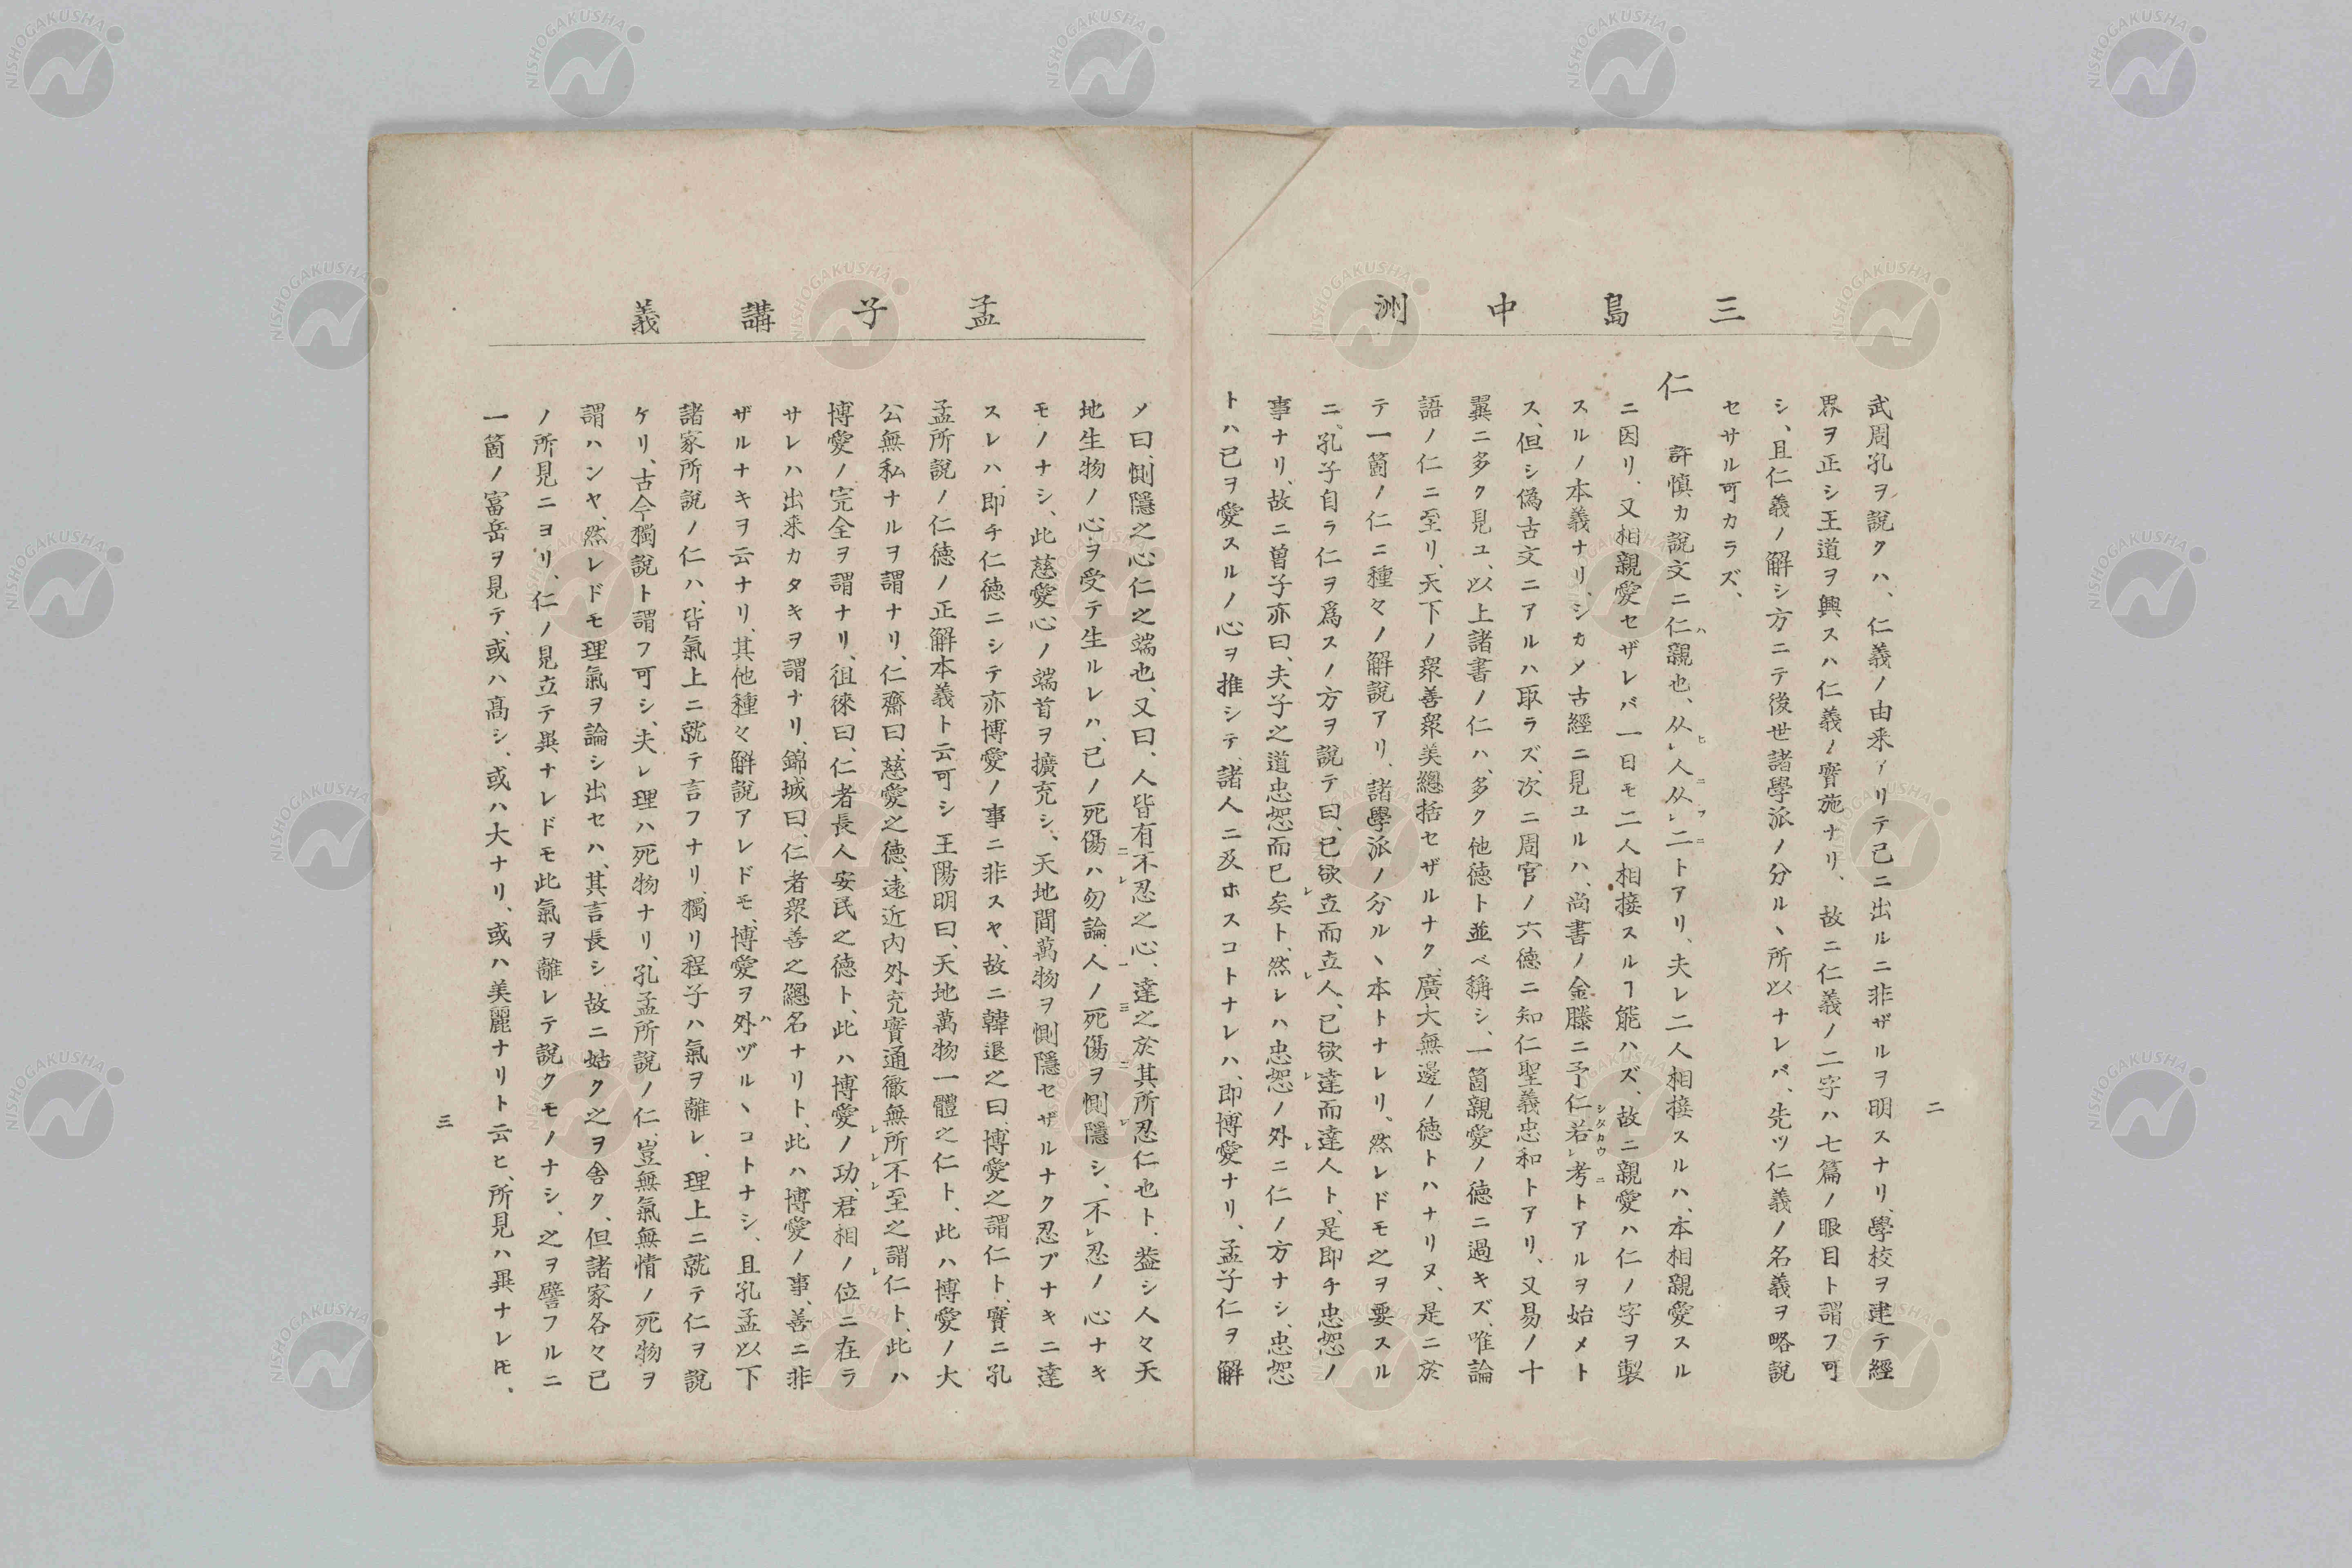 三島中洲
武周孔ヲ説クハ、仁義ノ由来アリテ己ニ出ルニ非ザルヲ明スナリ、學校ヲ建テ經
界ヲ正シ王道ヲ興スハ仁義ノ實施ナリ、故ニ仁義ノ二字ハ七篇ノ眼目ト謂フ可
シ、且仁義ノ解シ方ニテ後世諸學派ノ分ルヽ所以ナレバ、先ツ仁義ノ名義ヲ略説
セサル可カラズ、
仁
許慎カ説文ニ仁ハ親也、从レ人从レ二トアリ、夫レ二人相接スルハ、本相親愛スル
ニ因リ、又相親愛セザレバ一日モ二人相接スルヿ能ハズ、故ニ親愛ハ仁ノ字ヲ製
スルノ本義ナリ、シカメ古經ニ見ユルハ、尚書ノ金縢ニ予仁若レ考トアルヲ始メト
ス、但シ偽古文ニアルハ取ラズ、次ニ周官ノ六徳ニ知仁聖義忠和トアリ、又易ノ十
翼ニ多ク見ユ、以上諸書ノ仁ハ、多ク他徳ト並ベ稱シ、一箇親愛ノ徳ニ過キズ、唯論
語ノ仁ニ至リ、天下ノ衆善衆美總括セザルナク、廣大無邊ノ徳トハナリヌ、是ニ於
テ一箇ノ仁ニ種々ノ解説アリ、諸學派ノ分ルヽ本トナレリ、然レドモ之ヲ要スル
ニ、孔子自ラ仁ヲ爲スノ方ヲ説テ曰、己欲レ立而立レ人、己欲レ達而達レ人ト、是即チ忠恕ノ
事ナリ、故ニ曾子亦曰、夫子之道忠恕而已矣ト、然レハ忠恕ノ外ニ仁ノ方ナシ、忠恕
トハ己ヲ愛スルノ心ヲ推シテ、諸人ニ及ホスコトナレハ、即博愛ナリ、孟子仁ヲ解
二
孟子講義
メ曰、惻隱之心仁之端也、又曰、人皆有不忍之心、達之於其所忍仁也ト、蓋シ人々天
地生物ノ心ヲ受テ生ルレハ、己ノ死傷ハ勿論、人ノ死傷ヲ惻隱シ、不レ忍ノ心ナキ
モノナシ、此慈愛心ノ端首ヲ擴充シ、天地間萬物ヲ惻隱セザルナク忍ブナキニ達
スレハ、即チ仁徳ニシテ亦博愛ノ事ニ非スヤ、故ニ韓退之曰、博愛之謂仁ト、實ニ孔
孟所説ノ仁徳ノ正解本義ト云可シ王陽明曰、天地萬物一體之仁ト、此ハ博愛ノ大
公無私ナルヲ謂ナリ、仁齋曰、慈愛之徳、遠近内外充實通徹無レ所レ不レ至之謂レ仁ト、此ハ
博愛ノ完全ヲ謂ナリ、徂徠曰、仁者長人安民之徳ト、此ハ博愛ノ功、君相ノ位ニ在ラ
サレハ出来カタキヲ謂ナリ、錦城曰、仁者衆善之總名ナリト、此ハ博愛ノ事、善ニ非
ザルナキヲ云ナリ、其他種々解説アレドモ、博愛ヲ外ヅルヽコトナシ、且孔孟以下
諸家所説ノ仁ハ、皆氣上ニ就テ言フナリ、獨リ程子ハ氣ヲ離レ、理上ニ就テ仁ヲ説
ケリ、古今獨説ト謂フ可シ、夫レ理ハ死物ナリ、孔孟所説ノ仁、豈無氣無情ノ死物ヲ
謂ハンヤ、然レドモ理氣ヲ論シ出セハ、其言長シ、故ニ姑ク之ヲ舎ク、但諸家各々己
ノ所見ニヨリ、仁ノ見立テ異ナレドモ此氣ヲ離レテ説クモノナシ、之ヲ譬フルニ
一箇ノ富岳ヲ見テ、或ハ高シ、或ハ大ナリ、或ハ美麗ナリト云ヒ、所見ハ異ナレ𪜈、
三